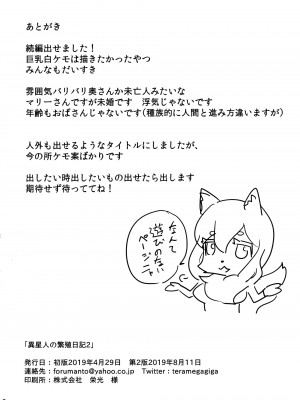 あとがき
続編出せました！
巨乳白ケモは描きたかったやつ
みんなもだいすき
雰囲気バリバリ奥さんか未亡人みたいな
マリーさんですが未婚です　浮気じゃないです
年齢もおばさんじゃない(種族的に人間と進み方違いますが)
人外も出せるようなタイトルにしましたが、
今の所ケモ案ばかりです
出したい時出したいもの出せたら出します
期待せず待っててね！
なんて
遊びのない
ページニャ
「異星人の繁殖日記2」
発行日：初版2019年4月29日　第2版2019年8月11日
連絡先：forumanto@yahoo.co.jp　Twitter：teramegagiga
印刷所：株式会社　栄光　様